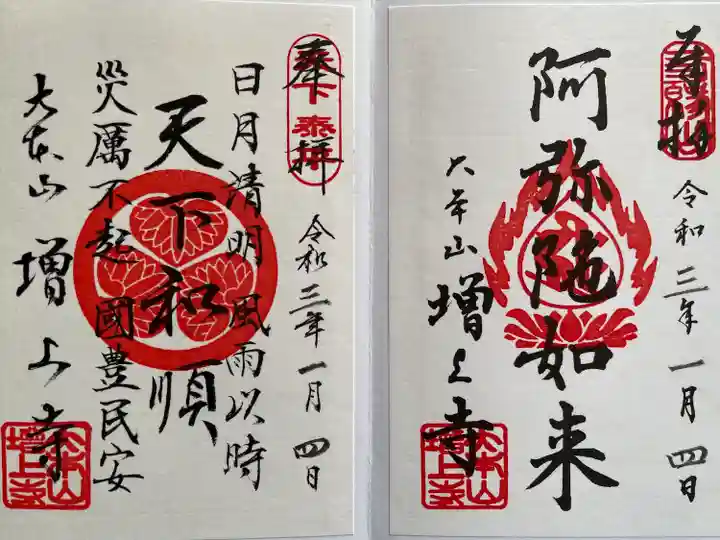 奉拝
令和三年一月四日
阿弥陀如来
大本山
増上寺
大本山
増上寺
奉拝
令和三年一月四日
日月清明 風雨以時
天下和順
災厲不起 國豊民安
大本山 増上寺
大本山
増上寺